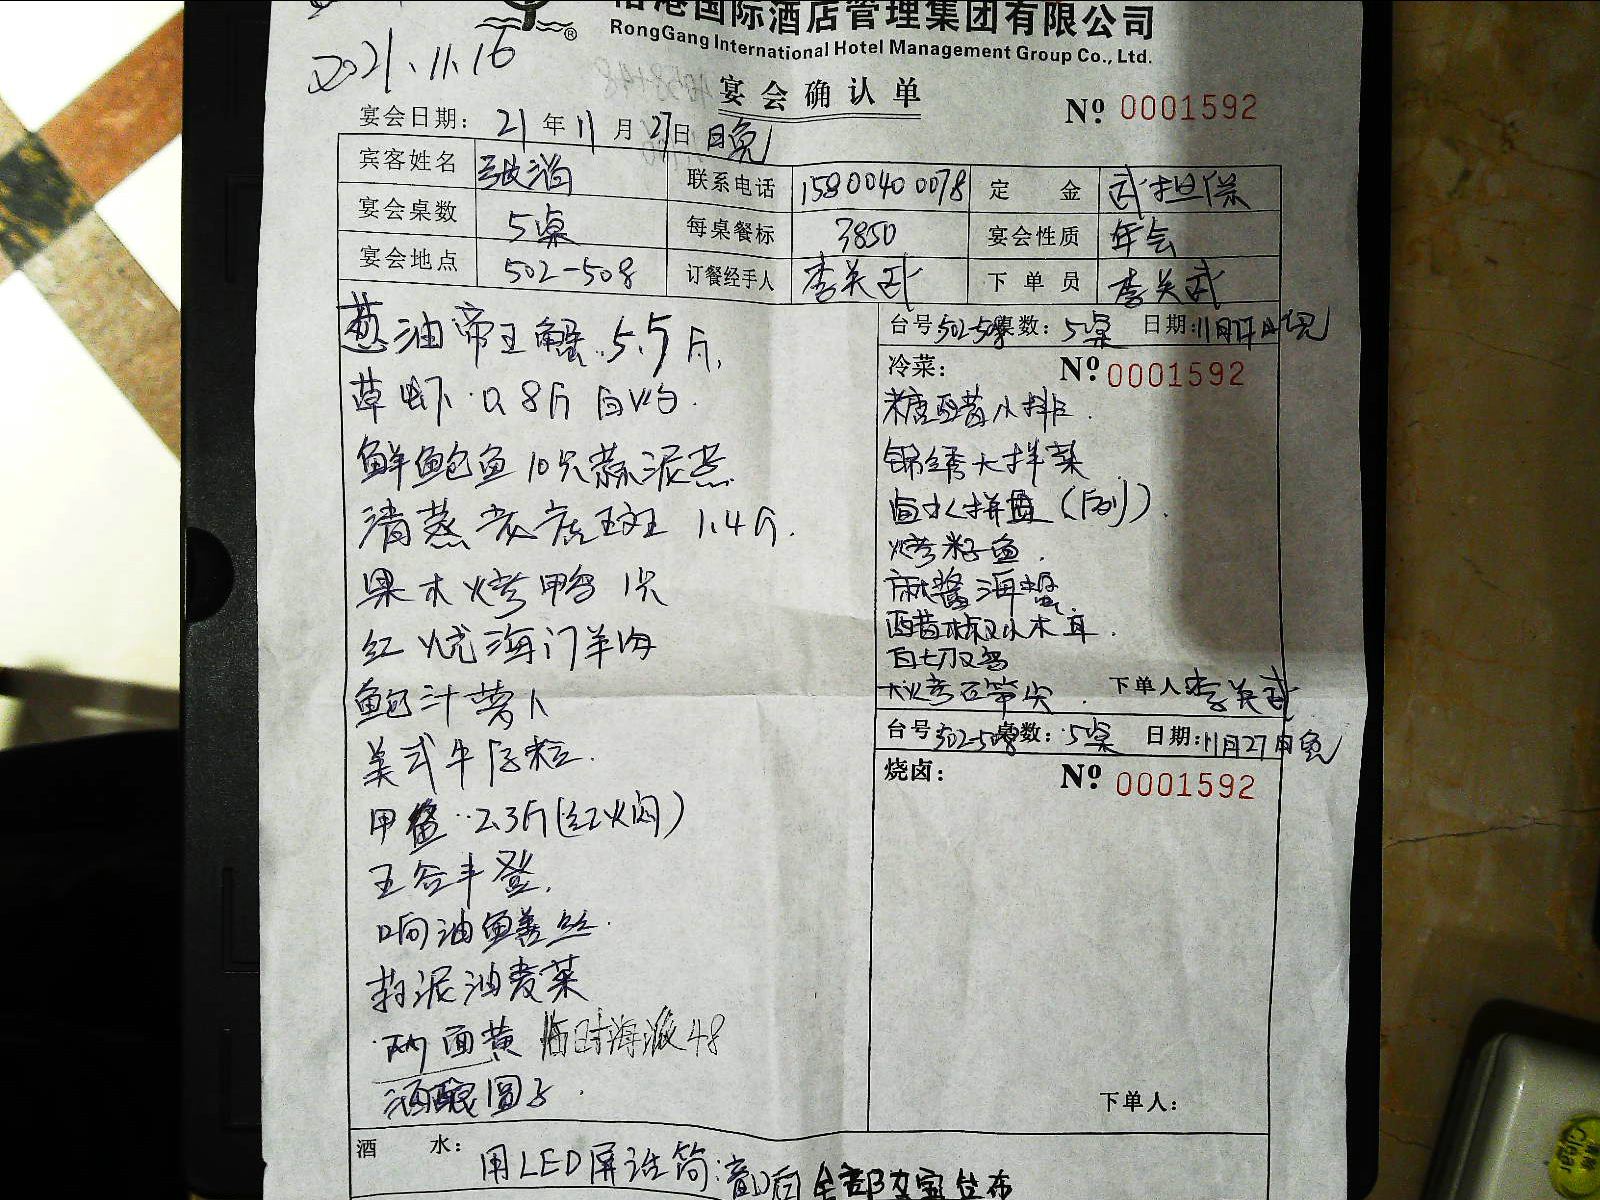 港国际酒店管理集团有限公司
RongGang International Hotel Management Group Co., Ltd.
2021.11.16
宴会确认单
№ 0001592
宴会日期: 21 年 11 月 27 日 晚
宾客姓名 联系电话 15800400078 定金 武担保
宴会桌数 5桌 每桌餐标 3850 宴会性质 年会
宴会地点 502-508 订餐经手人 李关武 下单员 李关武
葱油帝王蟹 5.5斤.
草虾 0.8斤 白灼.
鲜鲍鱼10只蒜泥蒸
清蒸老虎斑 1.4斤.
果木烤鸭 1只
红烧海门羊肉
鲍汁萝卜
美式牛仔粒.
甲鳖 2.3斤(红焖)
五谷丰登.
响油鳝丝.
油麦菜
两面黄 临时海派48
酒酿圆子.
台号: 502-508 桌数: 5桌 日期: 11月27日晚
冷菜: № 0001592
糖醋小排.
锦绣大拌菜
卤水拼盘
烤籽鱼.
麻酱海蜇
醋椒小木耳.
白切
下单人: 李关武
台号: 502-508 桌数: 5桌 日期: 11月27日晚
烧卤: № 0001592
下单人:
酒水: 用LED屏话筒